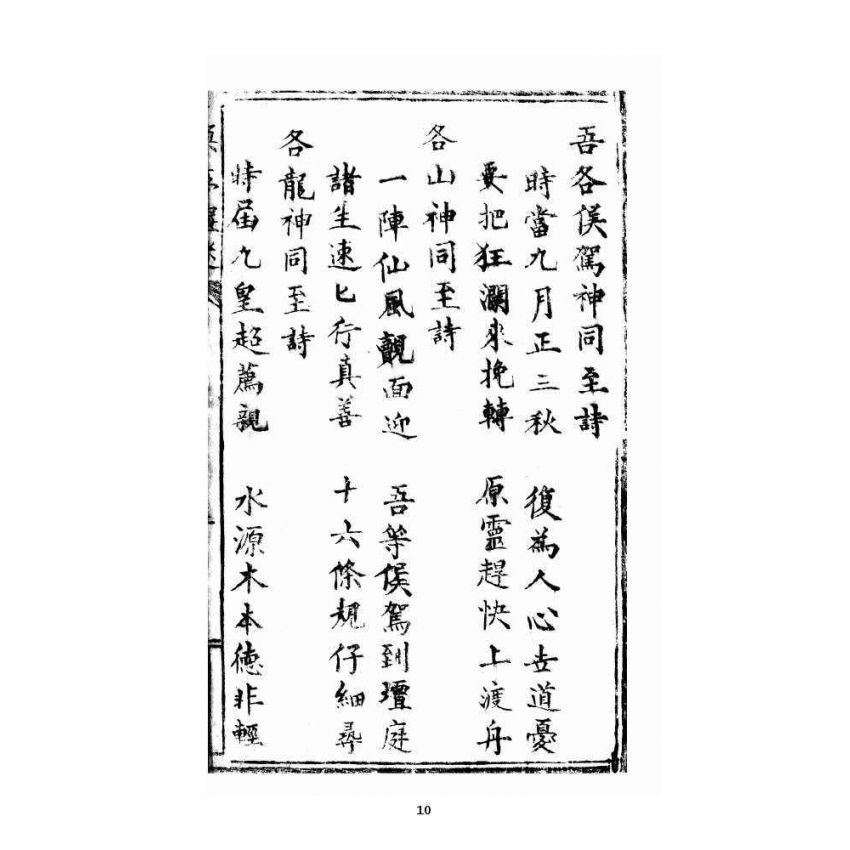 吾各俟駕神同至詩
時當九月正三秋 復為人心世道憂
要把狂瀾來挽轉 原靈趕快上渡舟
各山神同至詩
一陣仙風覿面迎 吾等俟駕到壇庭
諸生速匕行真善 十六條規仔細尋
各龍神同至詩
時屆九皇超薦親 水源木本德非輕
10